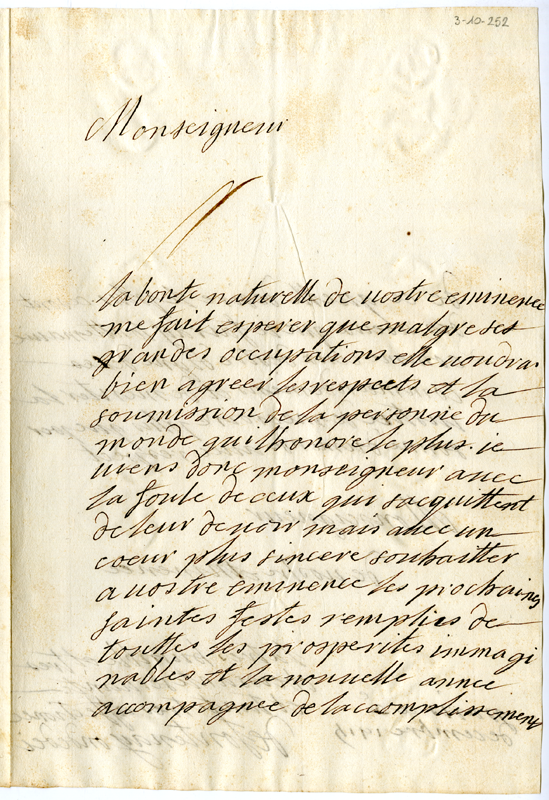 3-10-252
Monseigneur
la bonte naturelle de vostre eminence
me fait esperer que malgre ses
grandes occupations elle voudra
bien agreer les respects et la
soumission de la personne du
monde qui lhonore le plus. ie
viens donc monseigneur avec
la foule de ceux qui sacquittent
de leur devoir mais avec un
coeur plus sincere souhaitter
a vostre eminence les prochaines
saintes festes remplies de
touttes les prosperites immagi
nables et la nouvelle annee
accompagnee de laccomplissement